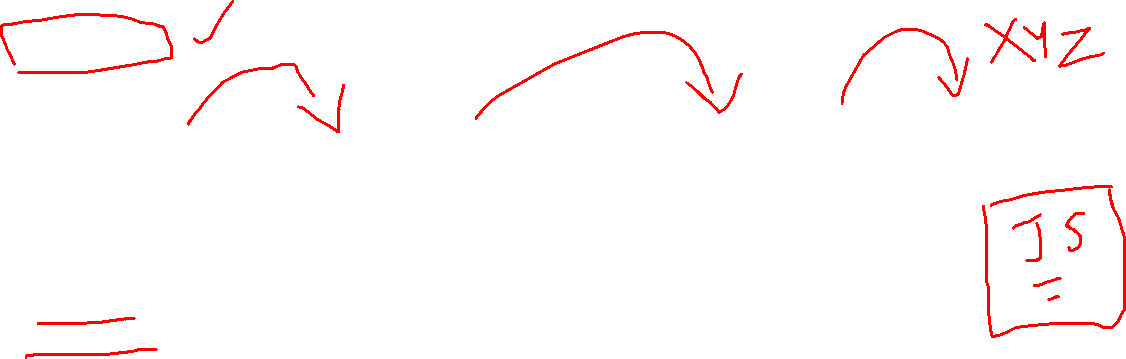 XYZ
JS